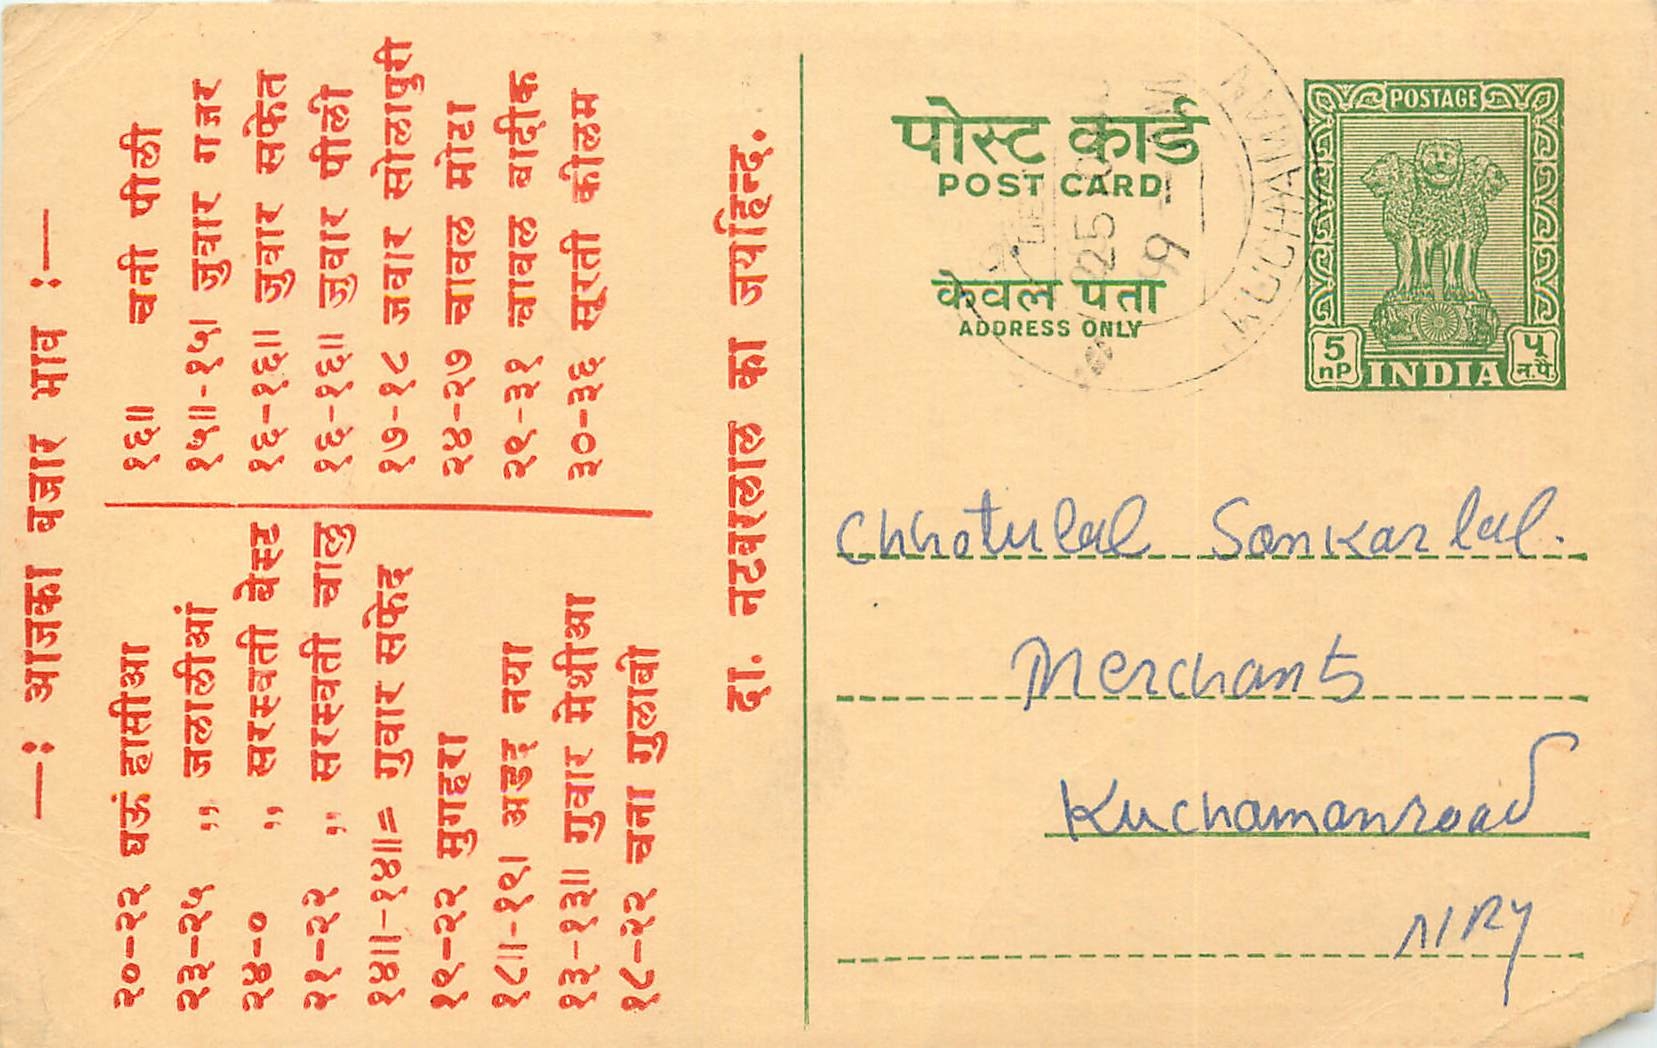 —: आजका बजार भाव :—
२०-२२ घऊं हासीआ
२३-२५ ,, जलालीआं
२४-० ,, सरस्वती बेस्ट
२१-२२ ,, सरस्वती चालु
१४॥-१४॥= गुवार सफेद
१९-२२ मुगहरा
१८॥-१९। अडद नया
१३-१३॥ गुवार मेथीआ
१८-२२ चना गुलाबी
१६॥ चनी पीली
१५॥-१५। जुवार गजर
१६-१६॥ जुवार सफेत
१६-१६॥ जुवार पीली
१७-१८ जवार सोलापुरी
२४-२७ चावल मोटा
२९-३१ चावल बारीक
३०-३६ सुरती कोलम
दा. नटवरलाल का जयहिन्द.
पोस्ट कार्ड
POST CARD
केवल पता
ADDRESS ONLY
POSTAGE
5 nP
INDIA
५ न.पै.
KUCHAMAN
25
Chhotulal Sankarlal.
Merchants
Kuchamanroad
N/RY